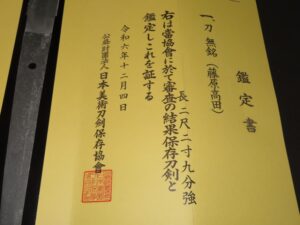 鑑定書
一、刀 無銘(藤原高田)
長二尺二寸九分強
右は當協會に於て審査の結果保存刀剣と
鑑定しこれを証する
令和六年十二月四日
公益財団法人日本美術刀剣保存協會